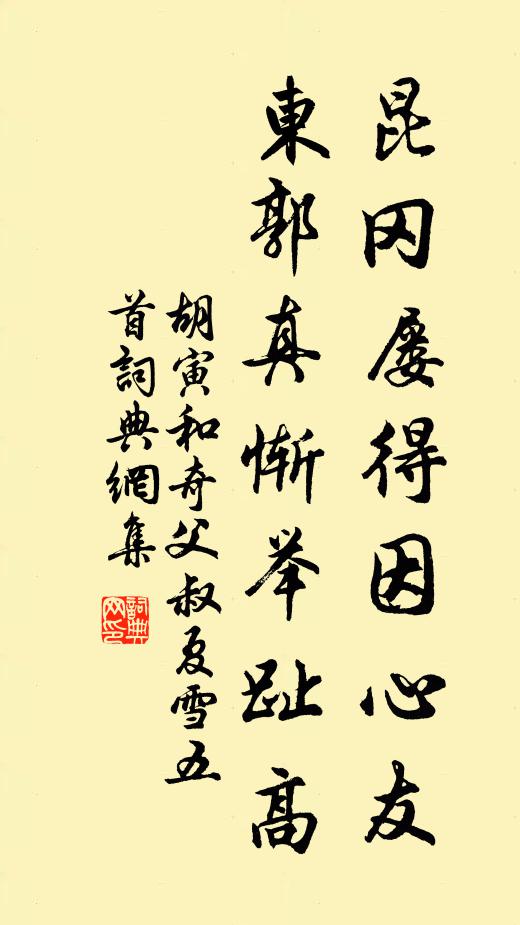 昆冈屡得因心友
東郭真惭举趾高
胡寅和奇父叔夏雪五
首詞典網集
詞典
网印